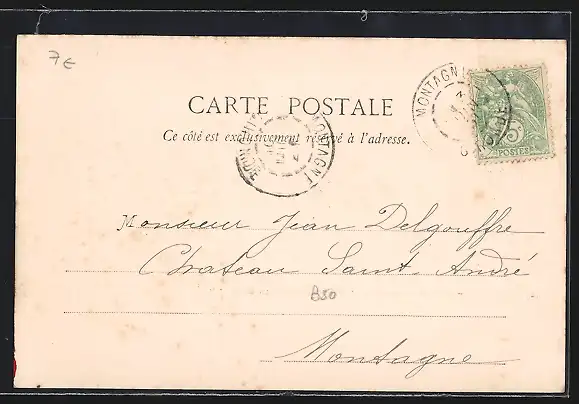 7€
CARTE POSTALE
Ce côté est exclusivement réservé à l'adresse.
MONTAGNE
5
POSTES
Monsieur Jean Delgouffre
Chateau Saint André
B30
Montagne